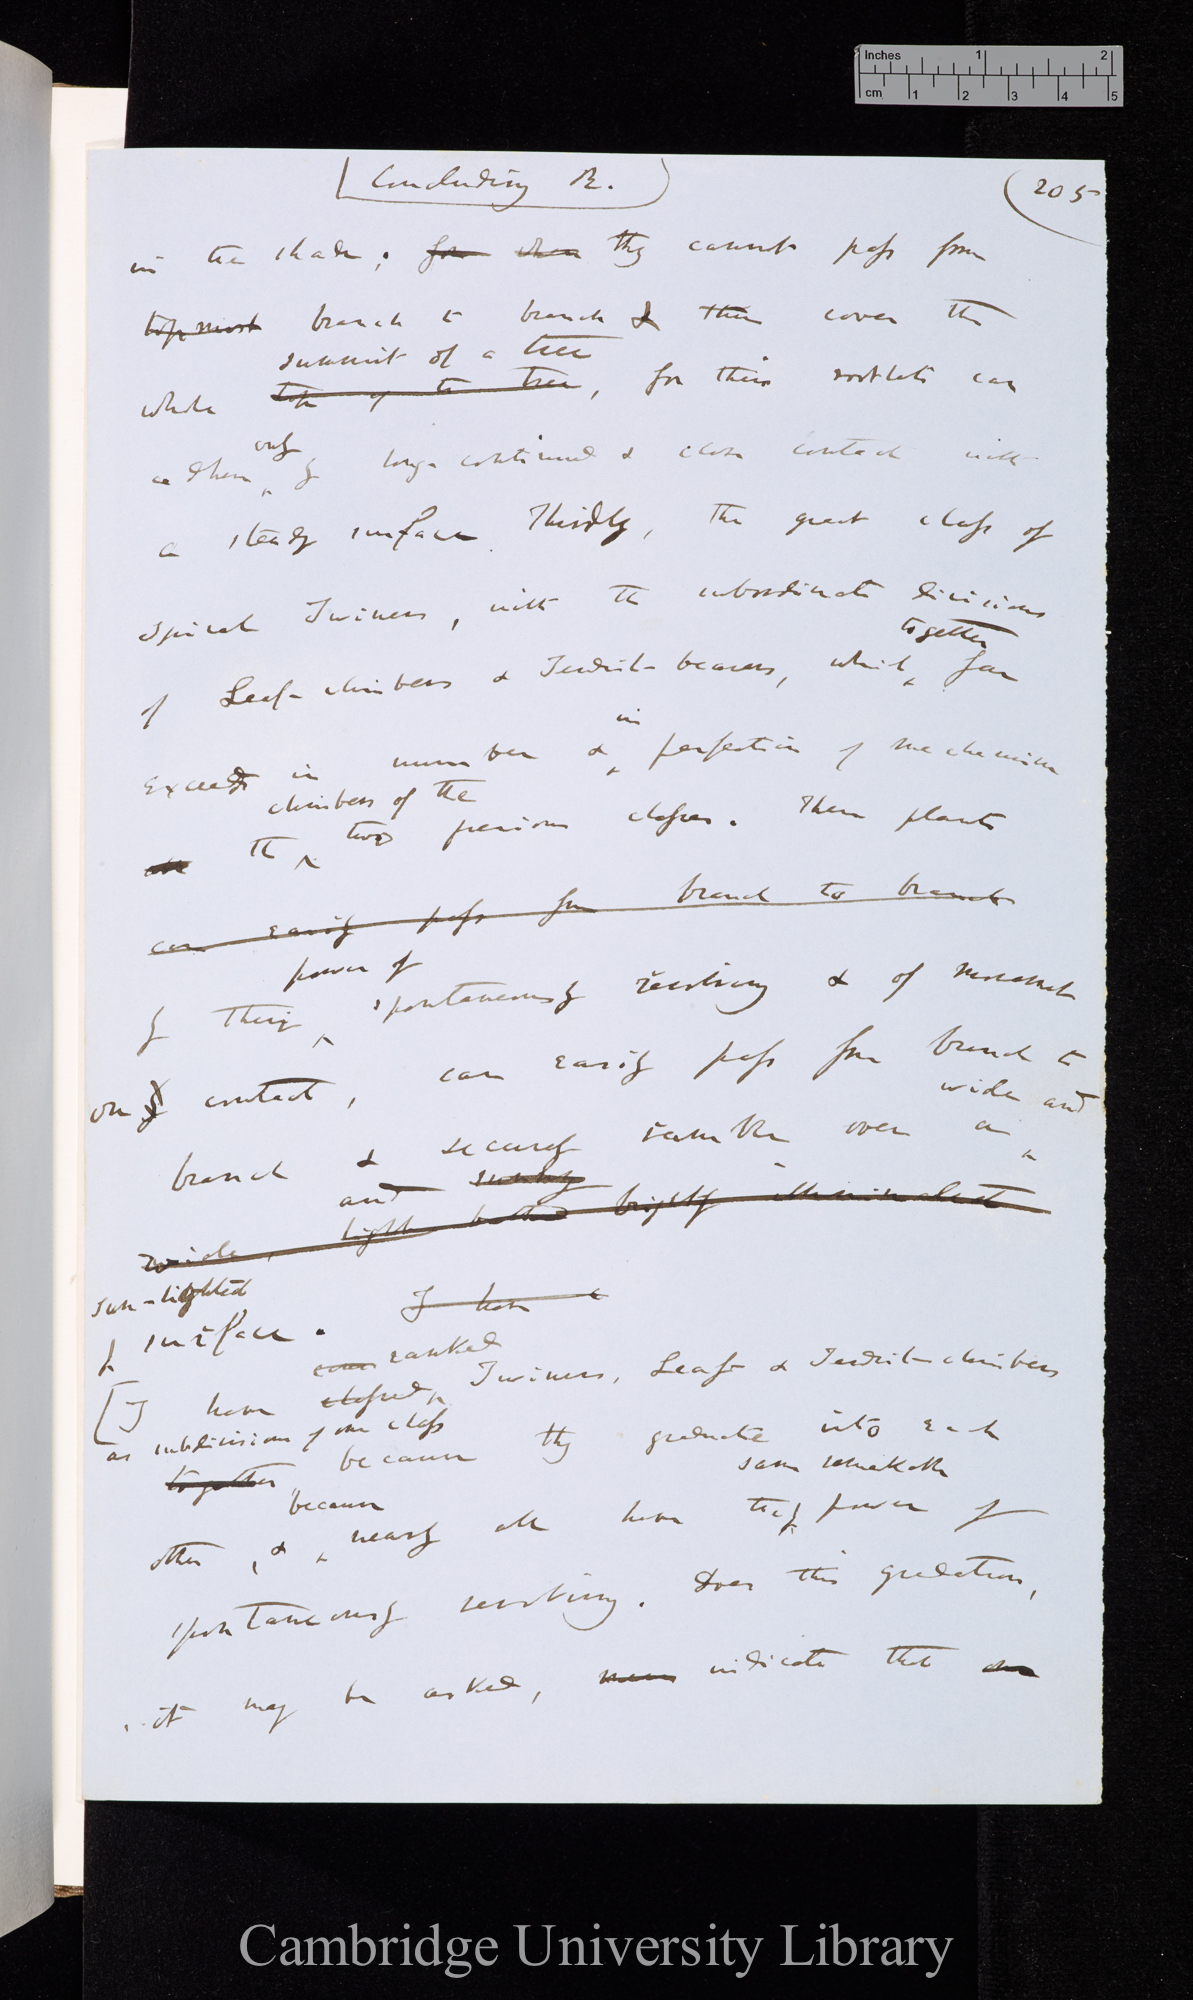 Inches 1 2
cm 1 2 3 4 5
Concluding R.
205
in the shade; for when they cannot pass from
top most branch to branch & then cover the
summit of a tree
whole top of the tree, for their rootlets can
only
adhere by long-continued & close contact with
a steady surface. Thirdly, the great class of
spiral Twiners, with the subordinate divisions
together
of Leaf-climbers & Tendril-bearers, which far
in
exceeds in number & perfection of mechanism
climbers of the
all the two previous classes. These plants
can easily pass from branch to branch
power of
by their spontaneously revolving & of movement
on by contact, can easily pass from branch to
wide and
branch & securely ramble over a
and sunny
wide, light bathed brightly illuminated
sun-lighted
surface. I have
ranked
[I have classed Twiners, Leaf & Tendril-climbers
as subdivisions of one class
together, because they graduate into each
same remarkable
because
other, & nearly all have the power of
spontaneously revolving. Does this gradation,
it may be asked, mean indicate that
Cambridge University Library